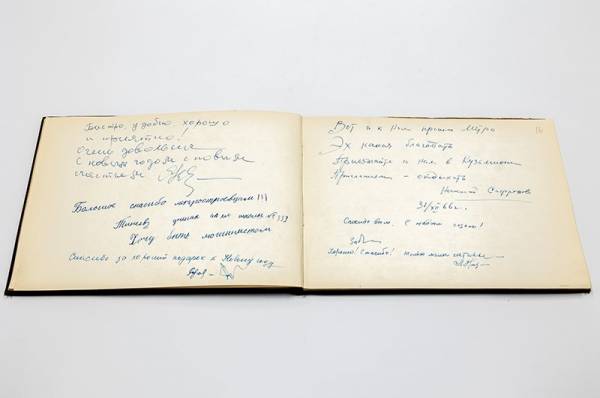 Быстро, удобно, хорошо
и приятно!
Очень довольны
С новым годом с новым
счастьем
Большое спасибо метростроевцам !!!
ученик школы № 333
Хочу быть машинистом
Спасибо за хороший подарок к Новому году
Вот и к Нам пришло Метро
Эх какая благодать
Приезжайте к нам в Кузьминки
Приглашаем - отдыхать
31/XII 66 г.
Спасибо вам. С новым годом!
Хорошо! Спасибо!